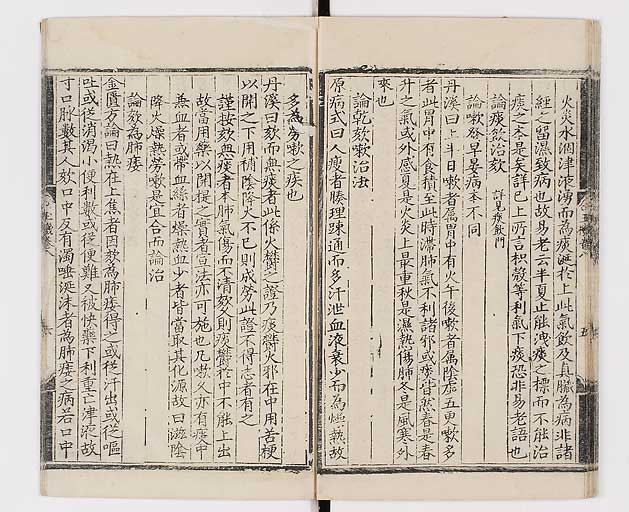 火炎水涸津液湧而為痰涎於上此氣飲及真臟為病非諸
經之留濕致病也故易老云半夏止能洩痰之標而不能治
痰之本是矣詳已上所言枳殼等利氣下痰恐非易老語也
論痰飲治欬 詳見痰飲門
論嗽發早晏病本不同
丹溪曰上半日嗽者属胃中有火午後嗽者属陰虛五更嗽多
者此胃中有食積至此時滯肺氣不利諸邪或痰皆然春是春
升之氣或外感夏是火炎上最重秋是濕熱傷肺冬是風寒外
來也
論乾欬嗽治法
原病式曰人瘦者腠理踈通而多汗泄血液衰少而為燥熱故
多為勞嗽之疾也
丹溪曰欬而無痰者此係火鬱之證乃痰鬱火邪在中用苦梗
以開之下用補陰降火不已則成勞此證不得志者有之
謹按欬無痰者本肺氣傷而不清欬久則痰鬱於中不能上出
故當用藥以開提之實者宣法亦可施也凡嗽久亦有痰中
無血者或帶血絲者燥熱血少者皆當取其化源故曰滋陰
降火燥熱勞嗽是宜合而論治
論欬為肺痿
金匱方論曰熱在上焦者因欬為肺痿得之或從汗出或從嘔
吐或從消渴小便利數或從便難又被快藥下利重亡津液故
寸口脉數其人欬口中反有濁唾涎沫者為肺痿之病若口中